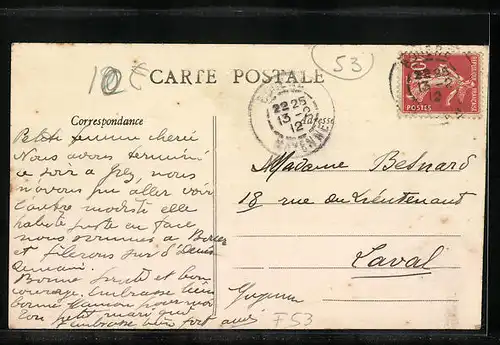 53
CARTE POSTALE
Correspondance
Adresse
22-25
13-2
12
MAYENNE
22-25
13-2
12
10
POSTES
REPUBLIQUE FRANÇAISE
femme cherie
Nous avons terminé
ce soir a Grez, nous
n'avons pu aller voir
l'autre modiste elle
habite juste en face
nous sommes a
et filerons sur St Denis
demain.
Bonne santé et bon
courage. Embrasse bien
bonne maman pour moi
Ton petit mari qui
t'embrasse bien fort
Madame Besnard
18 rue du Lieutenant
Laval
Mayenne
F53